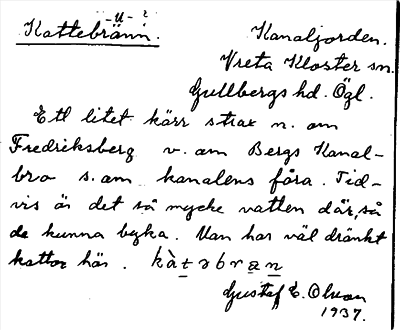 -u- ?
Kattebränn. Kanaljorden.
Vreta Kloster sn.
Gullbergs hd. Ögl.
Ett litet kärr strax n. om
Fredriksberg v. om Bergs Kanal-
bro s. om kanalens fåra. Tid-
vis är det så mycke vatten där, så
de kunna byka. Man har väl dränkt
kattor här. kàtəbran
Gustaf E. Olson
1937.